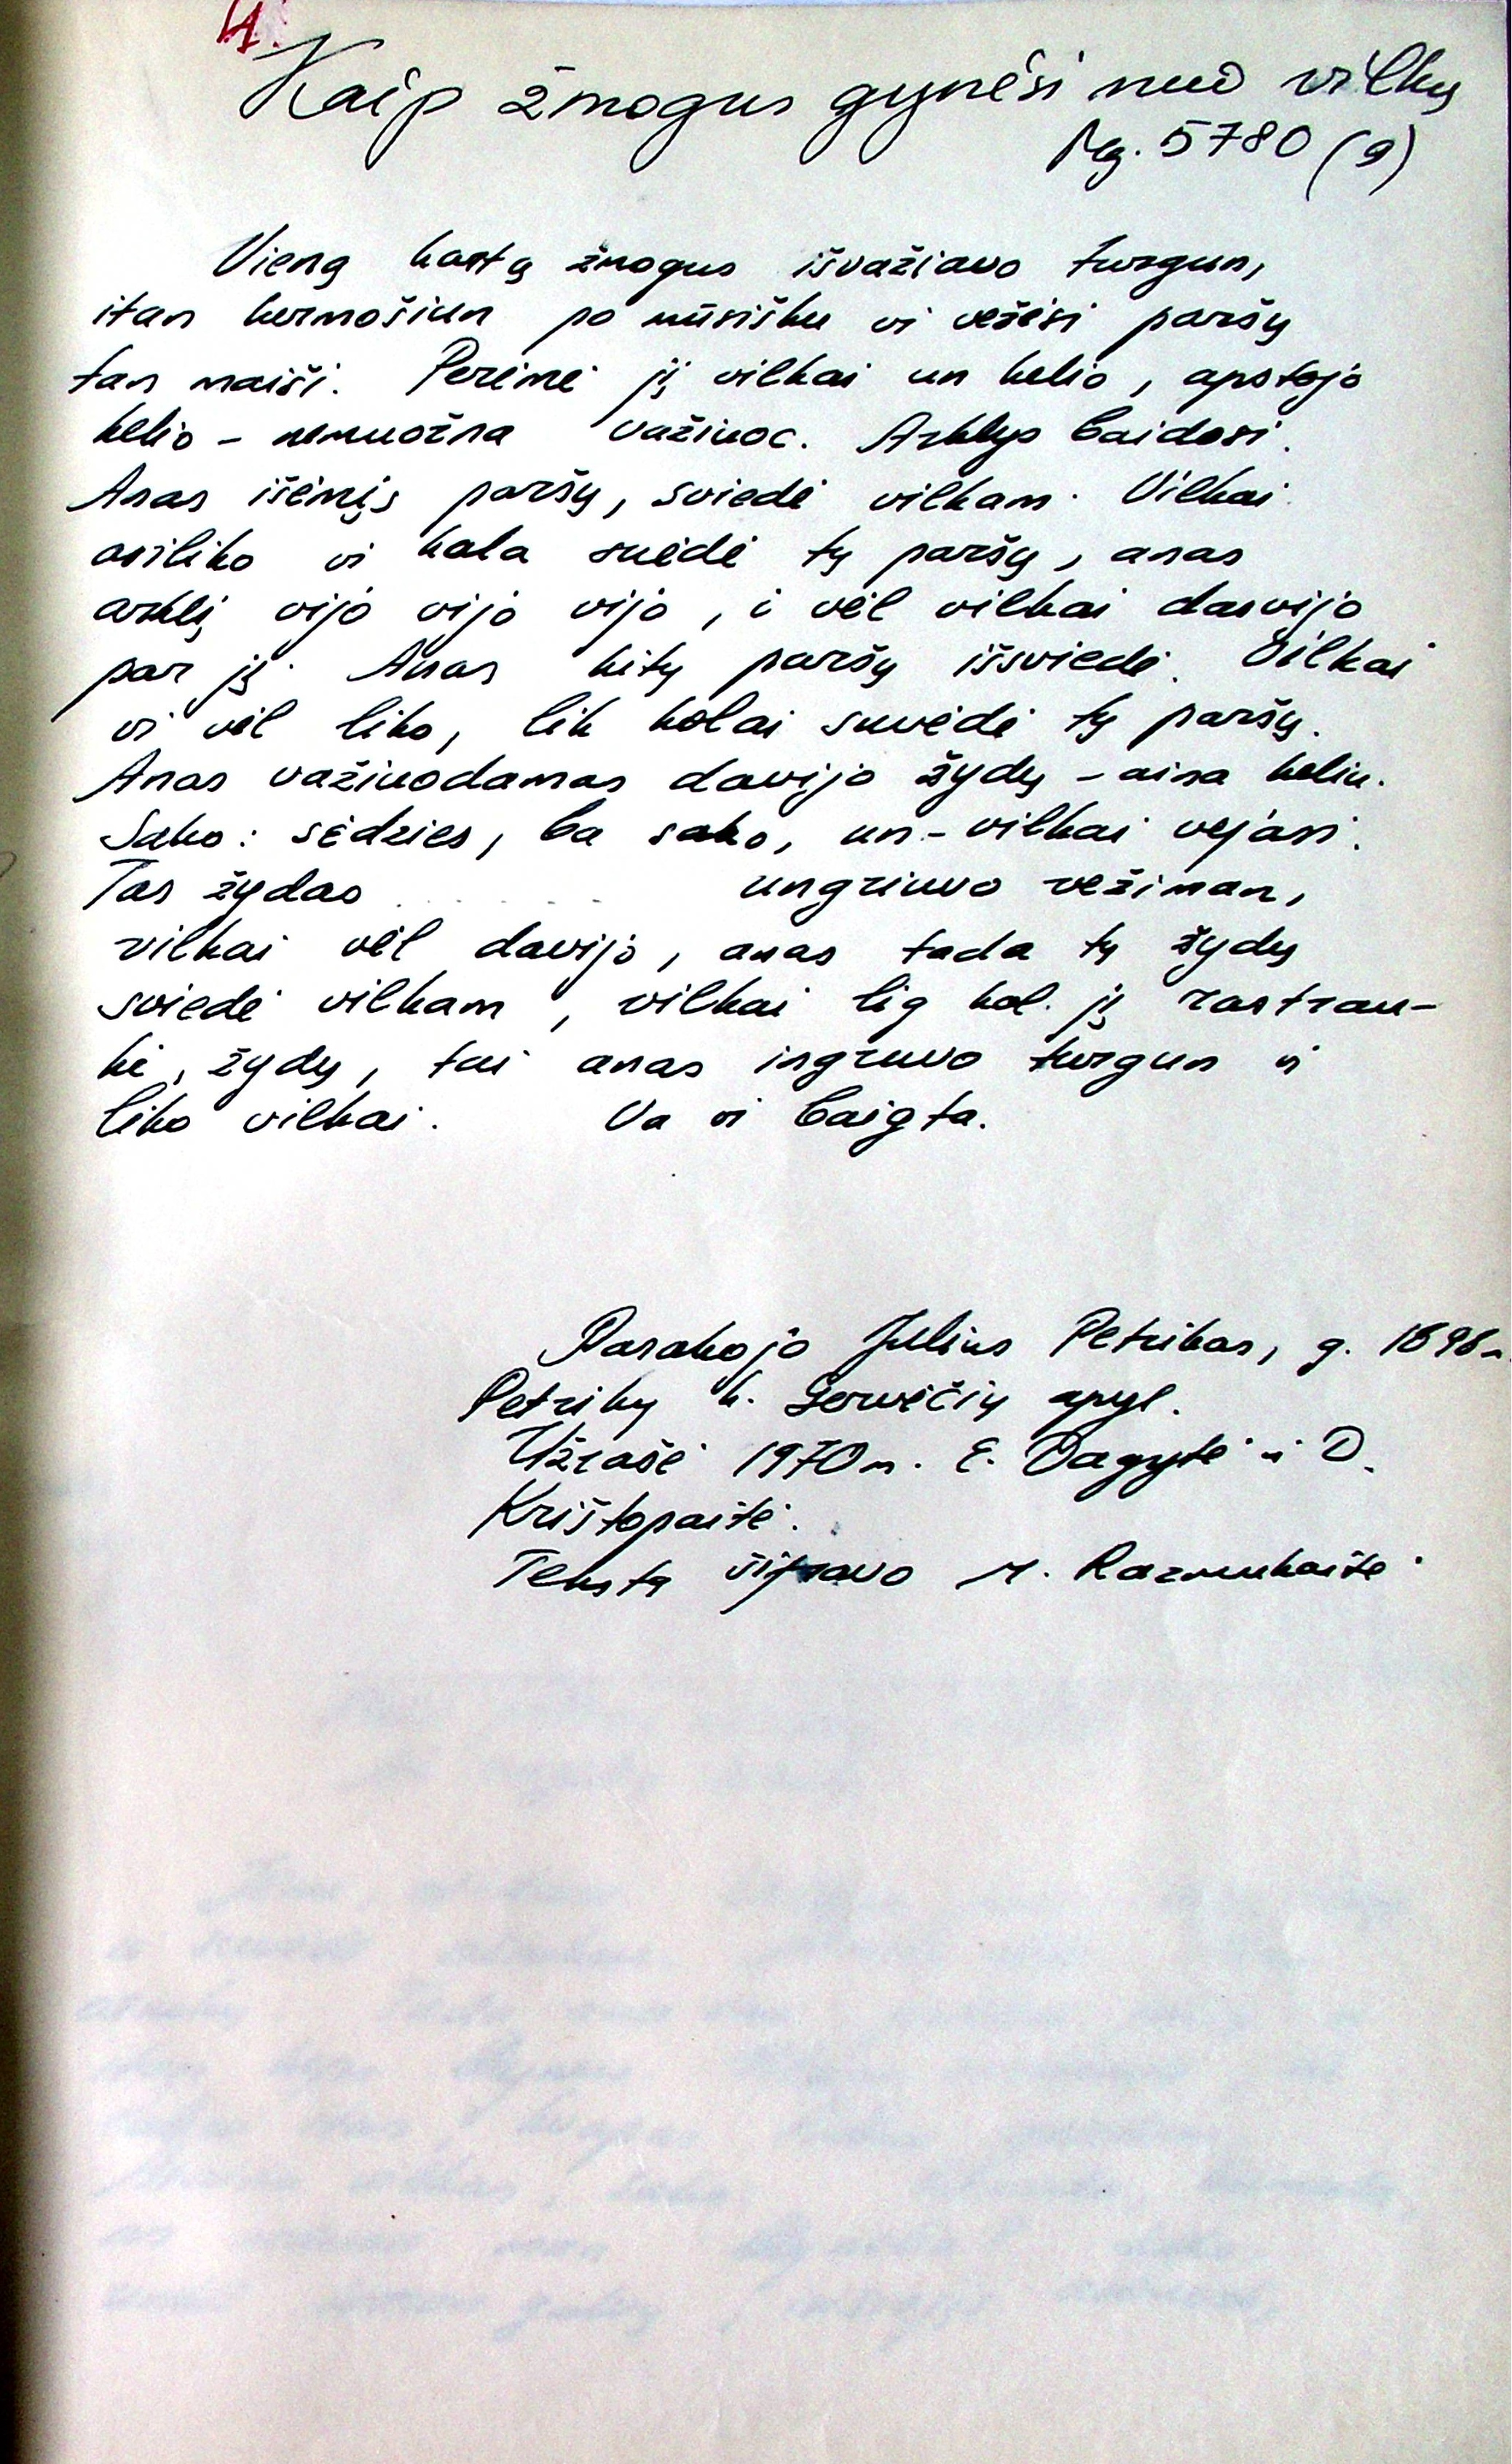 14.
Kaip žmogus gynėsi nuo vilkų
Mg. 5780 (9)
Vieną kartą žmogus išvažiavo turgun,
itan kermošiun po mūsišku ir vežėsi paršų
tan maiši. Perėmė jį vilkai un kelio, apstojo
kelio – nemuožna važiuoc. Arklys baidosi.
Anas išėmįs paršų, sviedė vilkam. Vilkai
asiliko ir kala suėdė tų paršų, anas
arklį vijo vijo vijo, i vėl vilkai dasvijo
par jį. Anas kitų paršų išsviedė. Vilkai
ir vėl liko, lik kolai suvėdė tų paršų.
Anas važiuodamas davijo žydų – aina keliu.
Sako: sėdzies, ba sako, un – vilkai vejasi.
Tas žydas . . . . . . ungriuvo vežiman,
vilkai vėl davijo, anas tada tų žydų
sviedė vilkam, vilkai lig kol jį rastrau-
kė, žydų, tai anas ingruvo turgun ir
liko vilkai. Va ir baigta.
Pasakojo Julius Petrikas, g. 1896 m.
Petrikų k. Gervėčių apyl.
Užrašė 1970 m. E. Dagytė ir D.
Krištopaitė.
Tekstą šifravo M. Razmukaitė